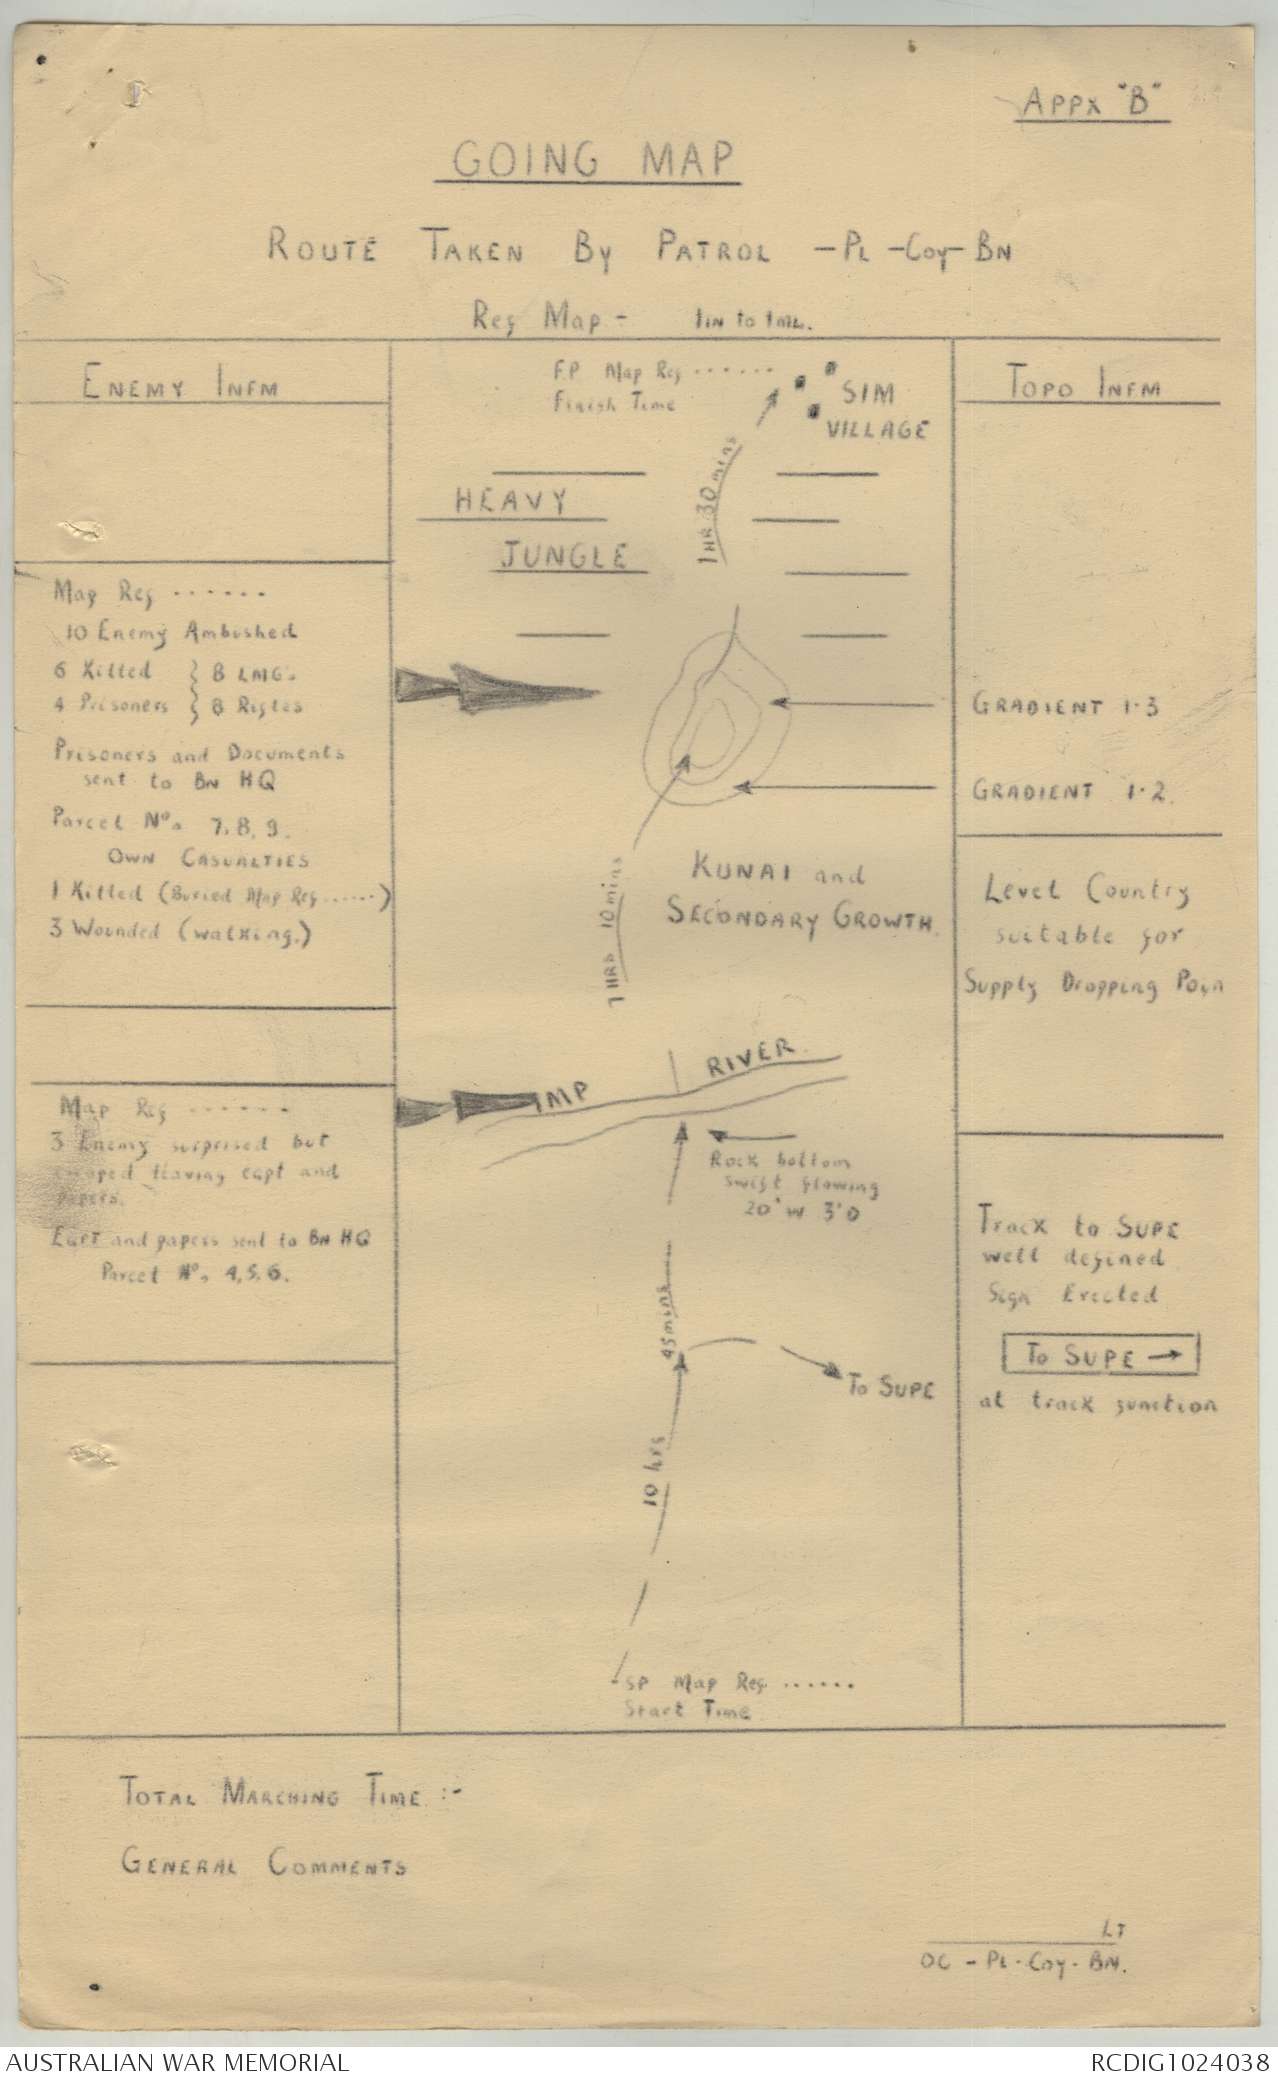 APPX "B"
GOING MAP
ROUTE TAKEN BY PATROL - PL - COY - BN
Ref Map - 1 IN to 1 ML.
ENEMY INFM
Map Ref ......
10 Enemy Ambushed
6 Killed } 8 LMGs
4 Prisoners } 8 Rifles
Prisoners and Documents
sent to BN HQ
Parcel Nos 7, 8, 9.
OWN CASUALTIES
1 Killed (Buried Map Ref ......)
3 Wounded (walking.)
Map Ref ......
3 Enemy surprised but
escaped leaving eqpt and
papers.
EQPT and papers sent to BN HQ
Parcel Nos 4, 5, 6.
F.P Map Ref ......
Finish Time
SIM
VILLAGE
1 HR 30 mins
HEAVY
JUNGLE
KUNAI and
SECONDARY GROWTH.
7 HRS 10 mins
IMP RIVER.
Rock bottom
swift flowing
20' W 3' D
45 mins
To SUPE
10 hrs
SP Map Ref. ......
Start Time
TOPO INFM
GRADIENT 1·3
GRADIENT 1·2.
Level Country
suitable for
Supply Dropping Poin
Track to SUPE
well defined
Sign Erected
To SUPE →
at track junction
TOTAL MARCHING TIME :-
GENERAL COMMENTS
LT
OC - PL - COY - BN.
AUSTRALIAN WAR MEMORIAL
RCDIG1024038